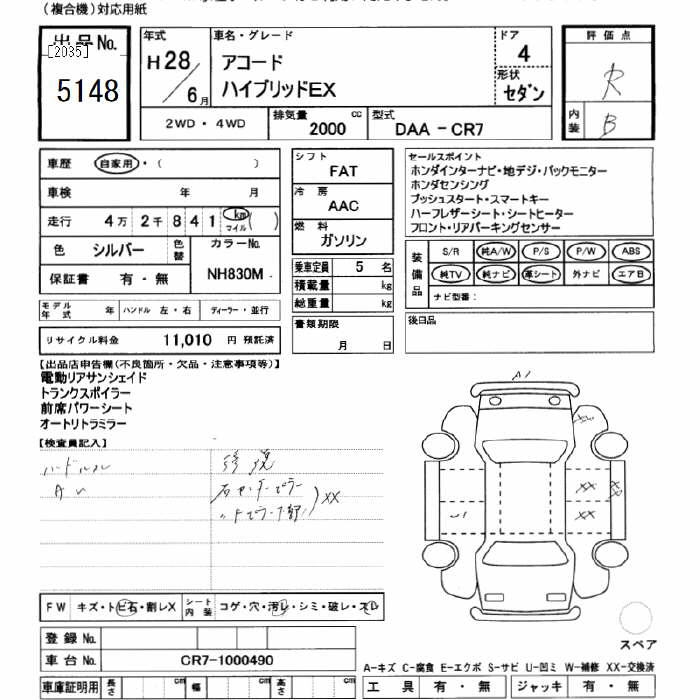 (複合機)対応用紙
出品No.
[2035]
5148
年式
H28/6月
車名・グレード
アコード
ハイブリッドEX
ドア
4
形状
セダン
評価点
R
内装
B
2WD・4WD
排気量 2000 cc
型式 DAA-CR7
車歴 自家用・( )
車検 年 月
走行 4万2千841 km マイル ( )
色 シルバー 色替 カラーNo. NH830M
保証書 有・無
モデル年式 年 ハンドル 左・右 ディーラー・並行
リサイクル料金 11,010 円 預託済
シフト
FAT
冷房
AAC
燃料
ガソリン
乗車定員 5 名
積載量 kg
総重量 kg
書類期限
月 日
セールスポイント
ホンダインターナビ・地デジ・バックモニター
ホンダセンシング
プッシュスタート・スマートキー
ハーフレザーシート・シートヒーター
フロント・リアパーキングセンサー
装備品
S/R 純A/W P/S P/W ABS
純TV 純ナビ 革シート 外ナビ エアB
ナビ型番:
後日品
【出品店申告欄(不良箇所・欠品・注意事項等)】
電動リアサンシェイド
トランクスポイラー
前席パワーシート
オートリトラミラー
【検査員記入】
ハンドルスレ
修復
右センターピラー
XX
A1
XX
XX
XX
FW キズ・トビ石・割レX
シート内装 コゲ・穴・汚レ・シミ・破レ・スレ
登録No.
車台No. CR7-1000490
車庫証明用 長さ cm 幅 cm 高さ cm
スペア
A-キズ C-腐食 E-エクボ S-サビ U-凹ミ W-補修 XX-交換済
工具 有・無 ジャッキ 有・無